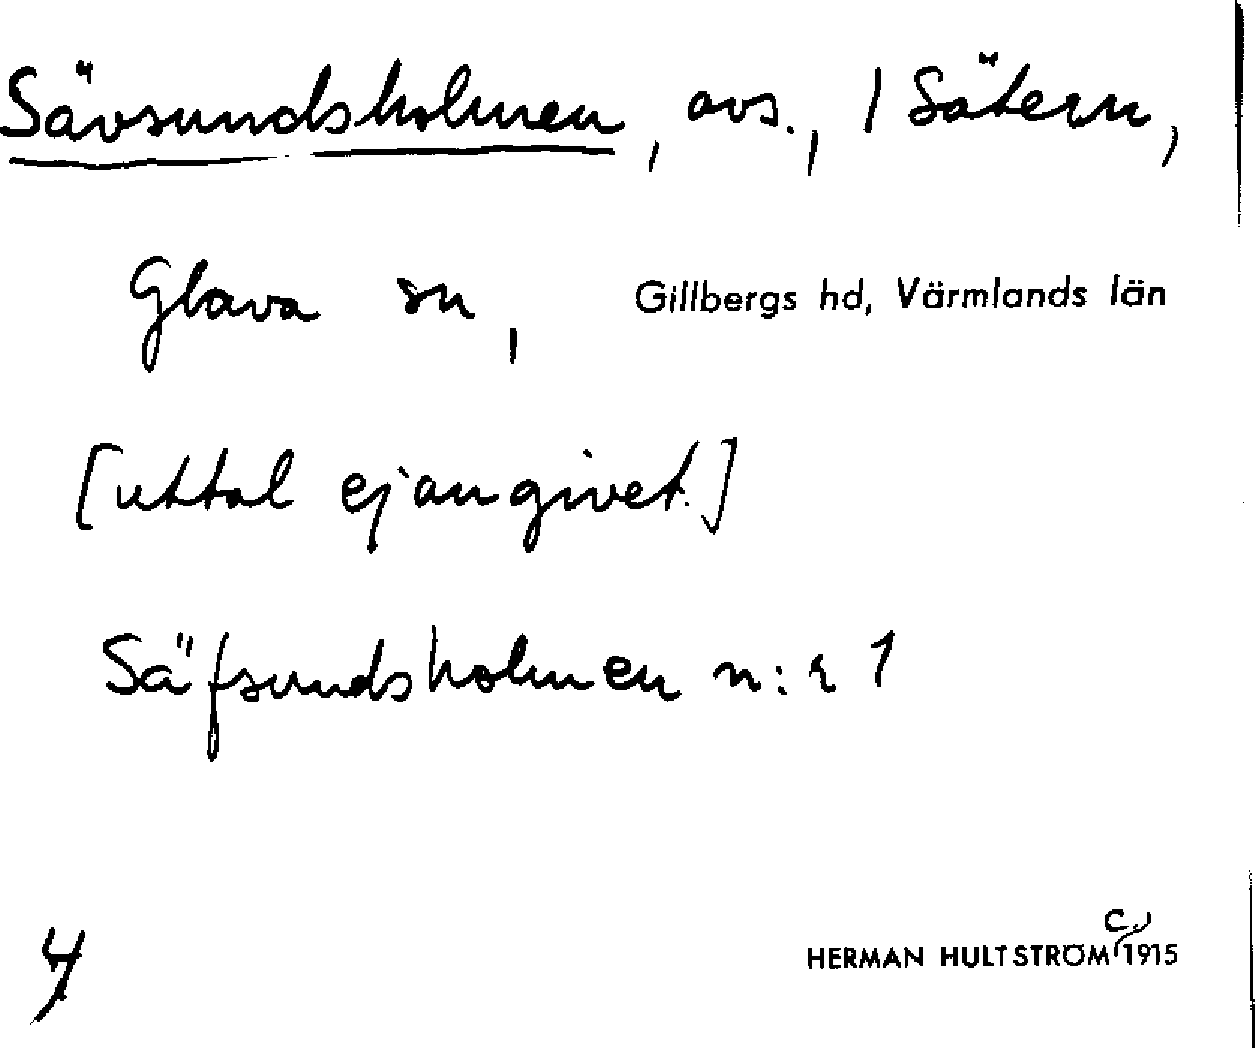 Sävsundsholmen, avs., / Sätern,
Glava sn, Gillbergs hd, Värmlands län
[uttal ej angivet.]
Säfsundsholmen n:r 1
HERMAN HULTSTRÖM c. 1915